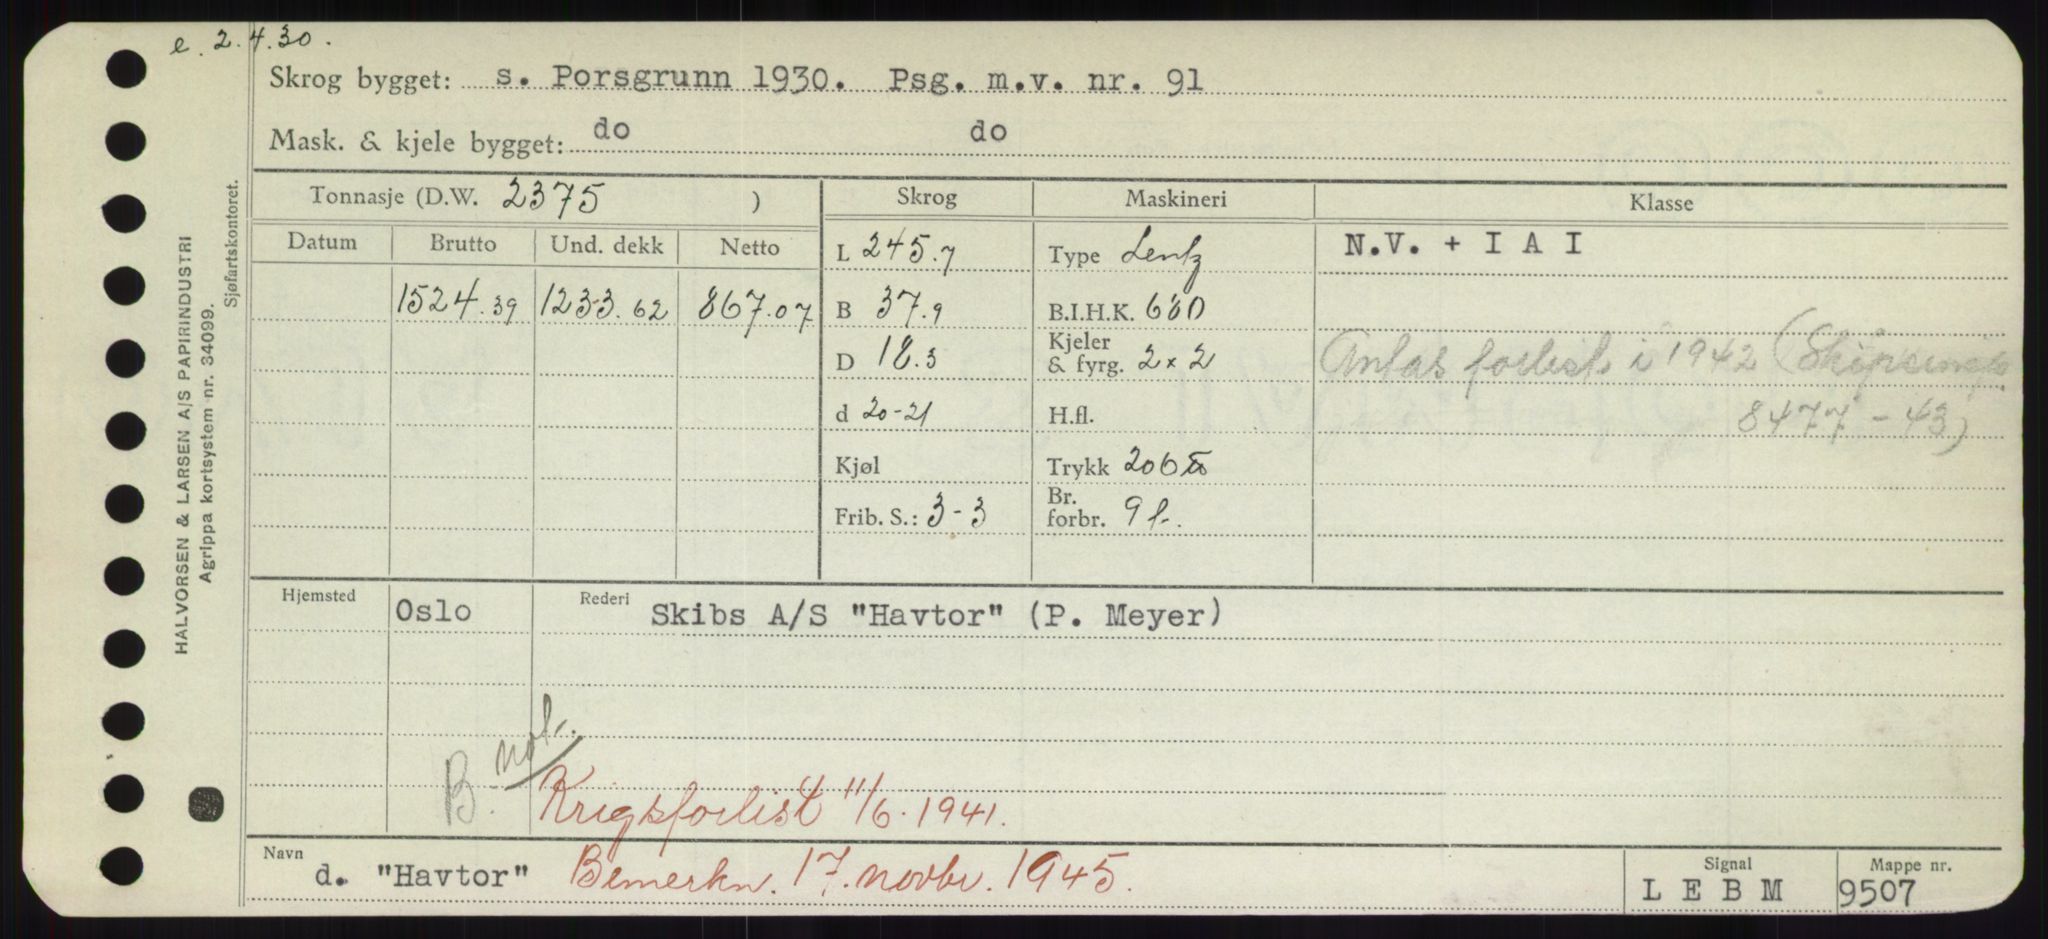 e. 2.4.30.
Skrog bygget: s. Porsgrunn 1930. Psg. m.v. nr. 91
Mask. & kjele bygget: do do
Tonnasje (D.W. 2375 ) Skrog Maskineri Klasse
Datum Brutto Und. dekk Netto
L 245.7 Type Lentz N.V. + I A I
1524.39 1233.62 867.07 B 37.9 B.I.H.K. 680
D 18.3 Kjeler & fyrg. 2 x 2 Antas forlist i 1942 (Skipsinsp.
d 20-21 H.fl. 8477-43)
Kjøl Trykk 206
Frib. S.: 3-3 Br. forbr. 9 t.
Hjemsted Oslo Rederi Skibs A/S "Havtor" (P. Meyer)
B. not.
Krigsforlist 11/6.1941.
Navn d. "Havtor" Bemerkn. 17. novbr. 1945. Signal L E B M Mappe nr. 9507
HALVORSEN & LARSEN A/S PAPIRINDUSTRI
Agrippa kortsystem nr. 34099.
Sjøfartskontoret.